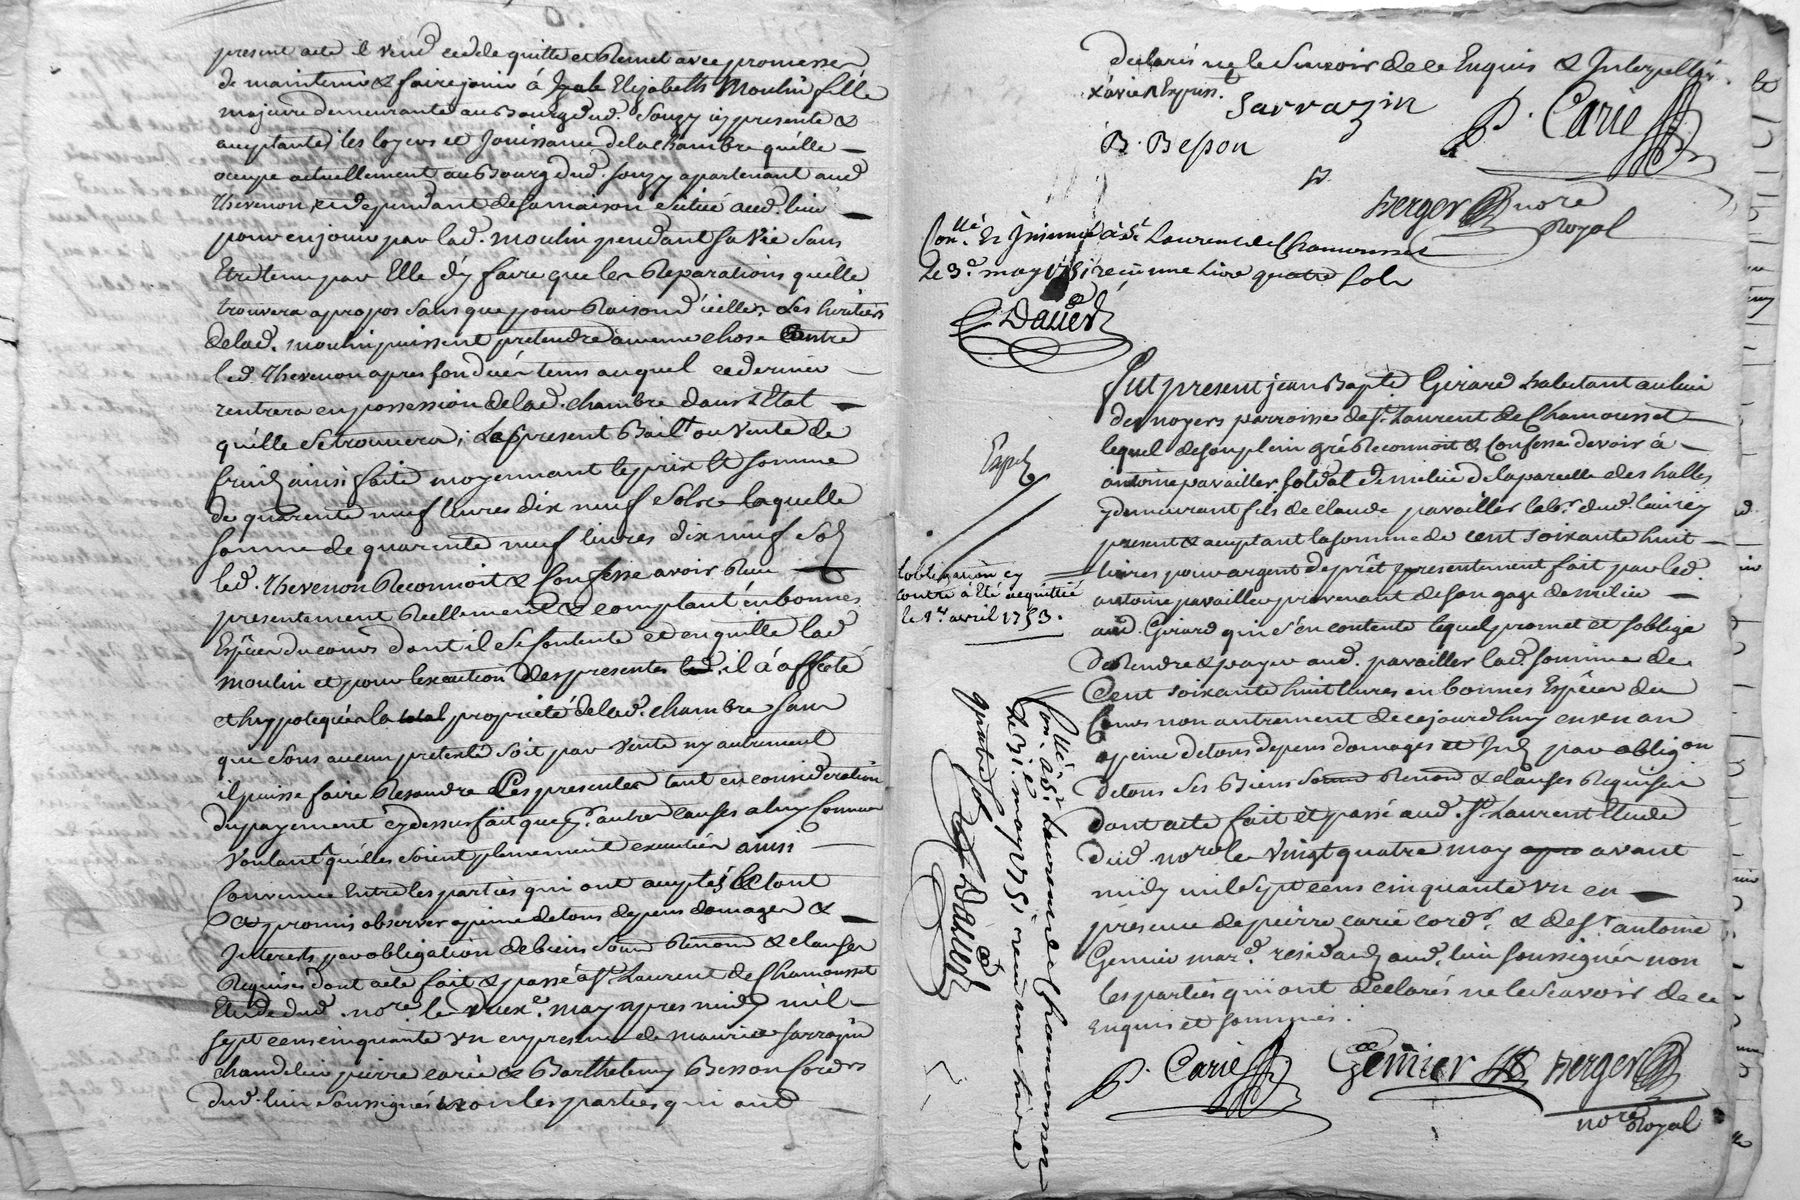 present acte il vend cedde quitte et Remet avec promesse
de maintenir & faire jouir à Elizabeth Moulin fille
majeure demeurante au Bourg dud. Souzy icy presente &
acceptante les loyers et Jouissance de la chambre qu'elle
ocupe actuellement au Bourg dud. Souzy apartenant aud
Thevenon, et dependant de sa maison scituée aud. lieu
pour en jouir par lad. Moulin pendant sa Vie sans
Etre tenue par Elle d'y faire que les Reparations quelle
trouvera apropos sans que pour Raison d'icelles Les heritiers
de lad. moulin puissent pretendre aucune chose Contre
led. Thevenon apres son decés tems auquel ce dernier
rentrera en possession de lad. chambre dans L'Etat
qu'elle se trouvera; Le present Bail ou Vente de
fruits ainsi faite moyennant le prix et somme
de quarente neuf livres dix neuf sols laquelle
somme de quarente neuf livres dix neuf sols
led. Thevenon Reconnoit & Confesse avoir Reçu
presentement Reellement & comptant en bonnes
Espéces du cours dont il se contente et en quitte lad
moulin et pour l'execution des presentes led. il à affecté
et hypotequé la total propriété de lad. chambre sans
que sous aucun pretexte soit par Vente ny autrement
il puisse faire Resoudre Les presentes tant en consideration
du payement cy dessus fait que pr. autres causes a luy Connues
Voulant qu'elles soient pleinement executées ainsi
Convenu Entre les parties qui ont accepté Le tout
& promis observer apeine de tous depens domages &
Interests par obligation de biens soum Renon & clauses
Requises dont acte fait & passé à St. Laurent de Chamousset
Etude dud. nore. le deuxe. may apres midy mil
sept cens cinquante un en presence de Maurice Sarrazin
chandelier pierre carié & Barthelemy Besson Cordrs
dud. lieu soussignés non les parties qui ont
declarés ne le Sçavoir de ce Enquis & Interpellés.
Sarrazin
P. Carie
B. Besson
Berger nore
Royal
Conllé. Et Insinué à St. Laurent de Chamousset
Le 3e. may 1751 reçu une Livre quatre sols
Daued
Fut present jean Bapte. Girard habitant au lieu
des noyers parroisse de St. Laurent de Chamousset
lequel de son plein gré Reconnoit & Confesse devoir à
antoine pavailler soldat de milice de la parcelle des halles
y demeurant fils de claude pavailler labr. dud.
present & acceptant la somme de cent soixante huit
livres pour argent de prêt presentement fait par led.
antoine pavailler provenant de son gage de milice
aud. Girard qui s'en contente lequel promet et s'oblige
de Rendre & payer aud. pavailler lad. somme de
Cent soixante huit livres en bonnes Espêces du
Cours non autrement de cejourdhuy en un an
apeine de tous depens domages et Int par obligon
de tous ses Biens soum Renon & clauses Requises
dont acte fait et passé aud. St. Laurent Etude
dud. nore. le vingt quatre may apre avant
midy mil sept cens cinquante un en
présence de pierre carié cordr. & de sr. antoine
Gemier marc. residands aud. lieu soussignés non
les parties qui ont declarés ne le Scavoir de ce
Enquis et sommés.
P. Carie
Gemier
Berger
nore Royal
l'obligation cy
contre à Eté acquittée
le 1er. avril 1753.
Conllé. à St. Laurent de Chamousset
Le 31e. may 1751 reçu une Livre
quatre sols Daued